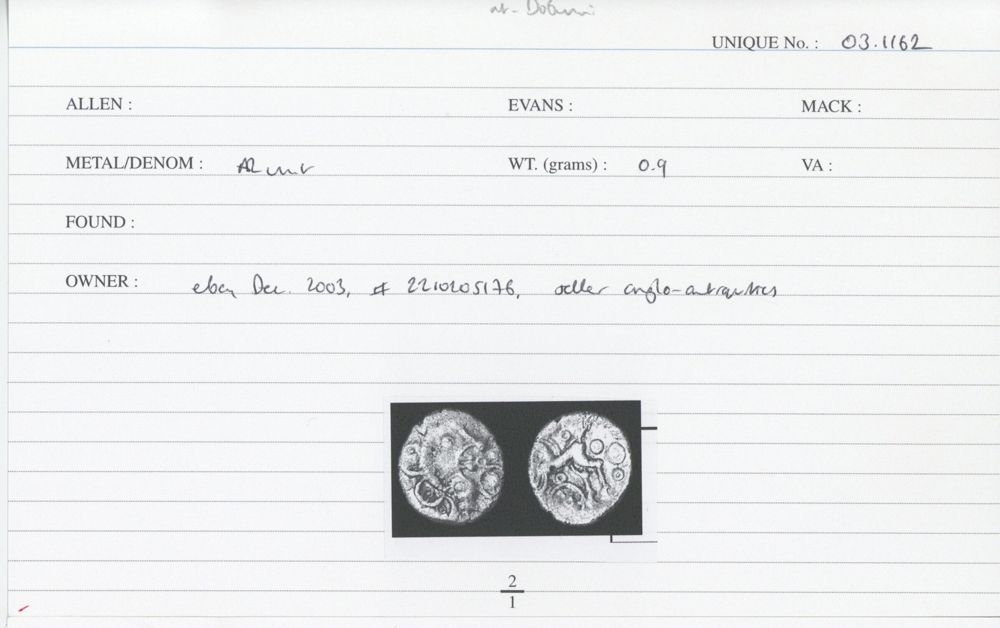 UNIQUE No. : 03.1162
ALLEN : EVANS : MACK :
METAL/DENOM : AR unit WT. (grams) : 0.9 VA :
FOUND :
OWNER : ebay Dec. 2003, # 2210205176, seller anglo-antiquities
2
1